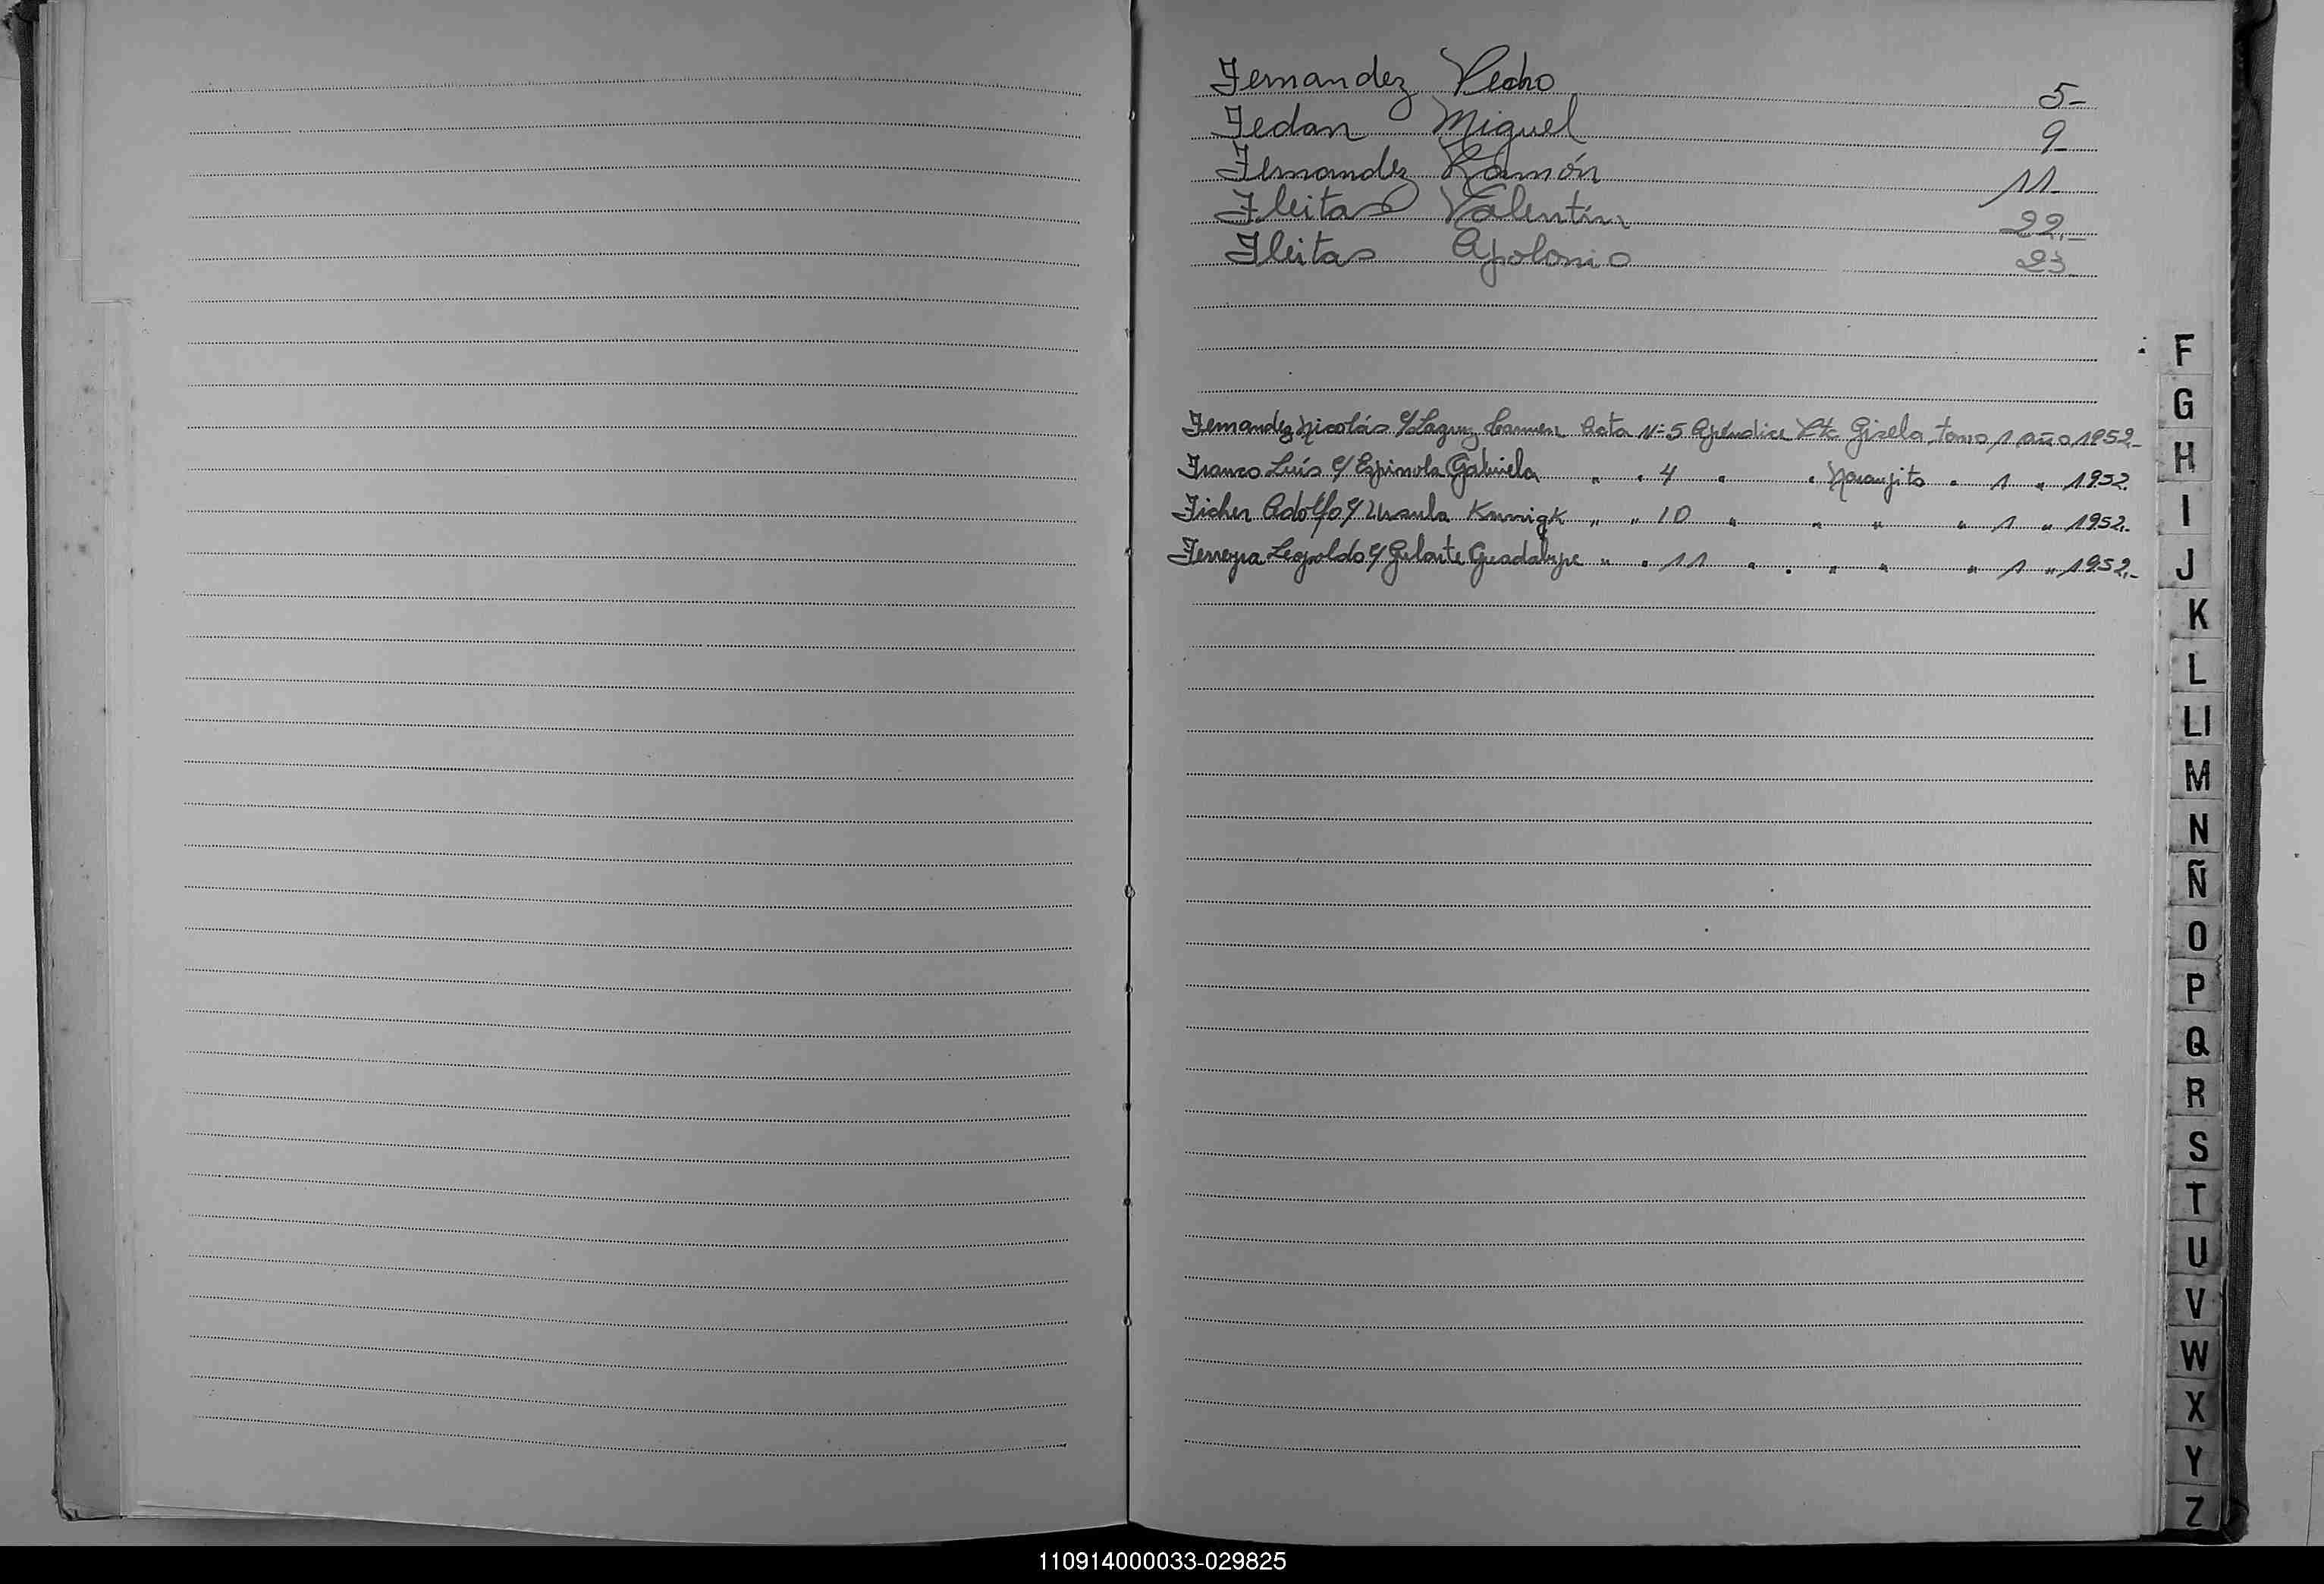 Fernandez Pedro 5-
Fedan Miguel 9-
Fernandez Ramón 11-
Fleitas Valentín 22.-
Fleitas Apolonio 23-
Fernandez Nicolás c/ Carmen Acta Nº 5 Apéndice Pto Gisela tomo 1 año 1952.-
Franco Luís c/ Espinola Gabriela " " 4 " " Naranjito " 1 " 1952.
Ficher Adolfo c/ Ursula Kunigk " " 10 " " " " 1 " 1952.-
Ferreyra Leopoldo c/ Guadalupe " " 11 " " " " " 1 " 1952.-
F
G
H
I
J
K
L
Ll
M
N
Ñ
O
P
Q
R
S
T
U
V
W
X
Y
Z
110914000033-029825